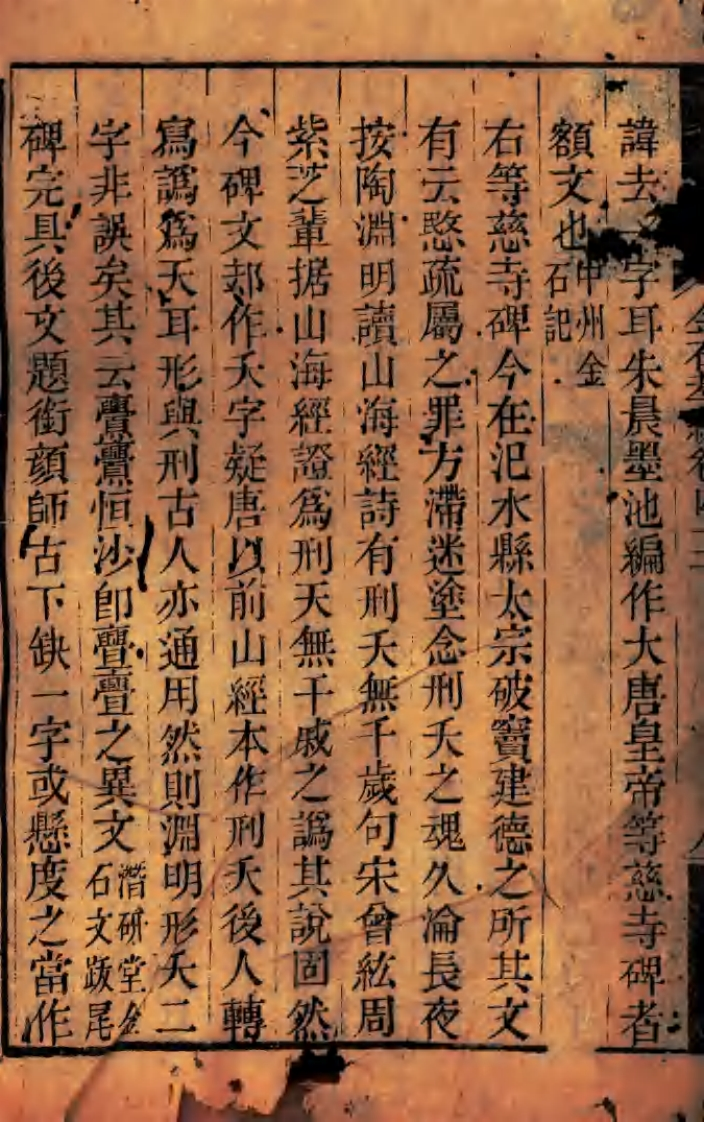 諱去一字耳朱晨墨池編作大唐皇帝等慈寺碑者
額文也中州金石記
右等慈寺碑今在汜水縣太宗破竇建德之所其文
有云愍疏屬之罪方滯迷塗念刑夭之魂久淪長夜
按陶淵明讀山海經詩有刑夭無千歲句宋曾紘周
紫芝輩据山海經證爲刑天無干戚之譌其說固然
今碑文却作夭字疑唐以前山經本作刑夭後人轉
寫譌爲天耳形與刑古人亦通用然則淵明形夭二
字非誤矣其云亹亹恒沙卽亹亹之異文潛研堂金石文跋尾
碑完具後文題銜顔師古下缺一字或懸度之當作